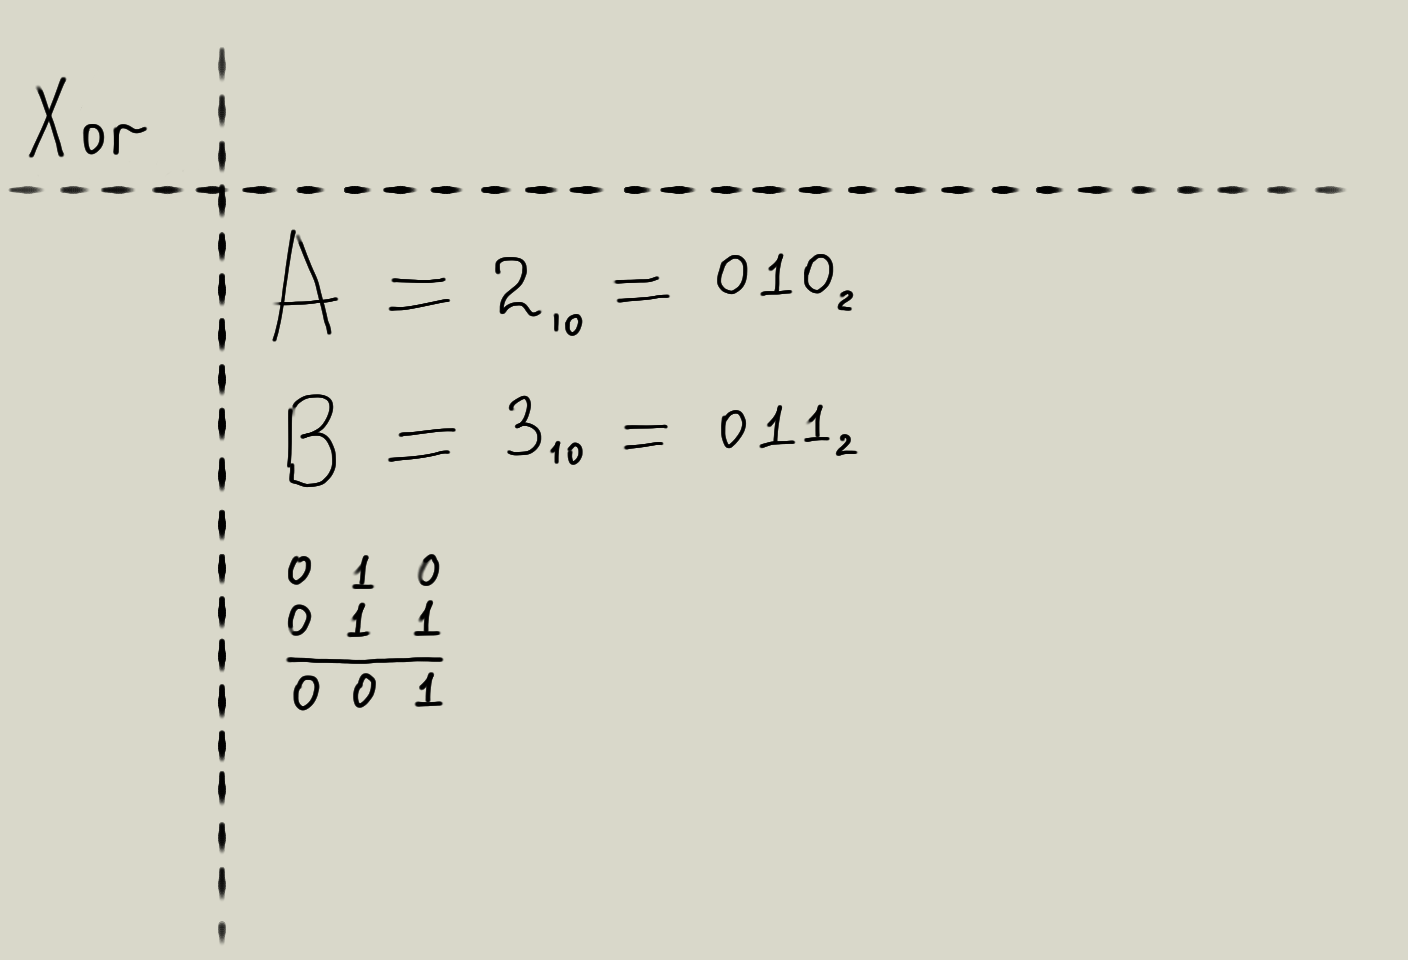 Xor
A = 2₁₀ = 010₂
B = 3₁₀ = 011₂
0 1 0
0 1 1
0 0 1